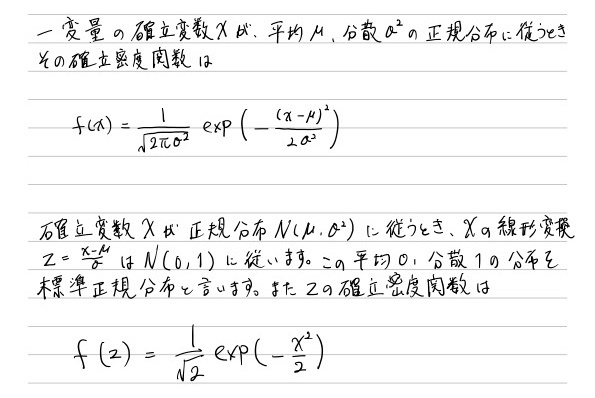 一変量の確立変数Xが、平均μ、分散σ²の正規分布に従うとき
その確立密度関数は
f(x) = 1/√(2πσ²) exp(-(x-μ)²/2σ²)
確立変数Xが正規分布N(μ,σ²)に従うとき、Xの線形変換
Z=(x-μ)/σ はN(0,1)に従います。この平均0,分散1の分布を
標準正規分布と言います。またZの確立密度関数は
f(z) = 1/√2 exp(-x²/2)